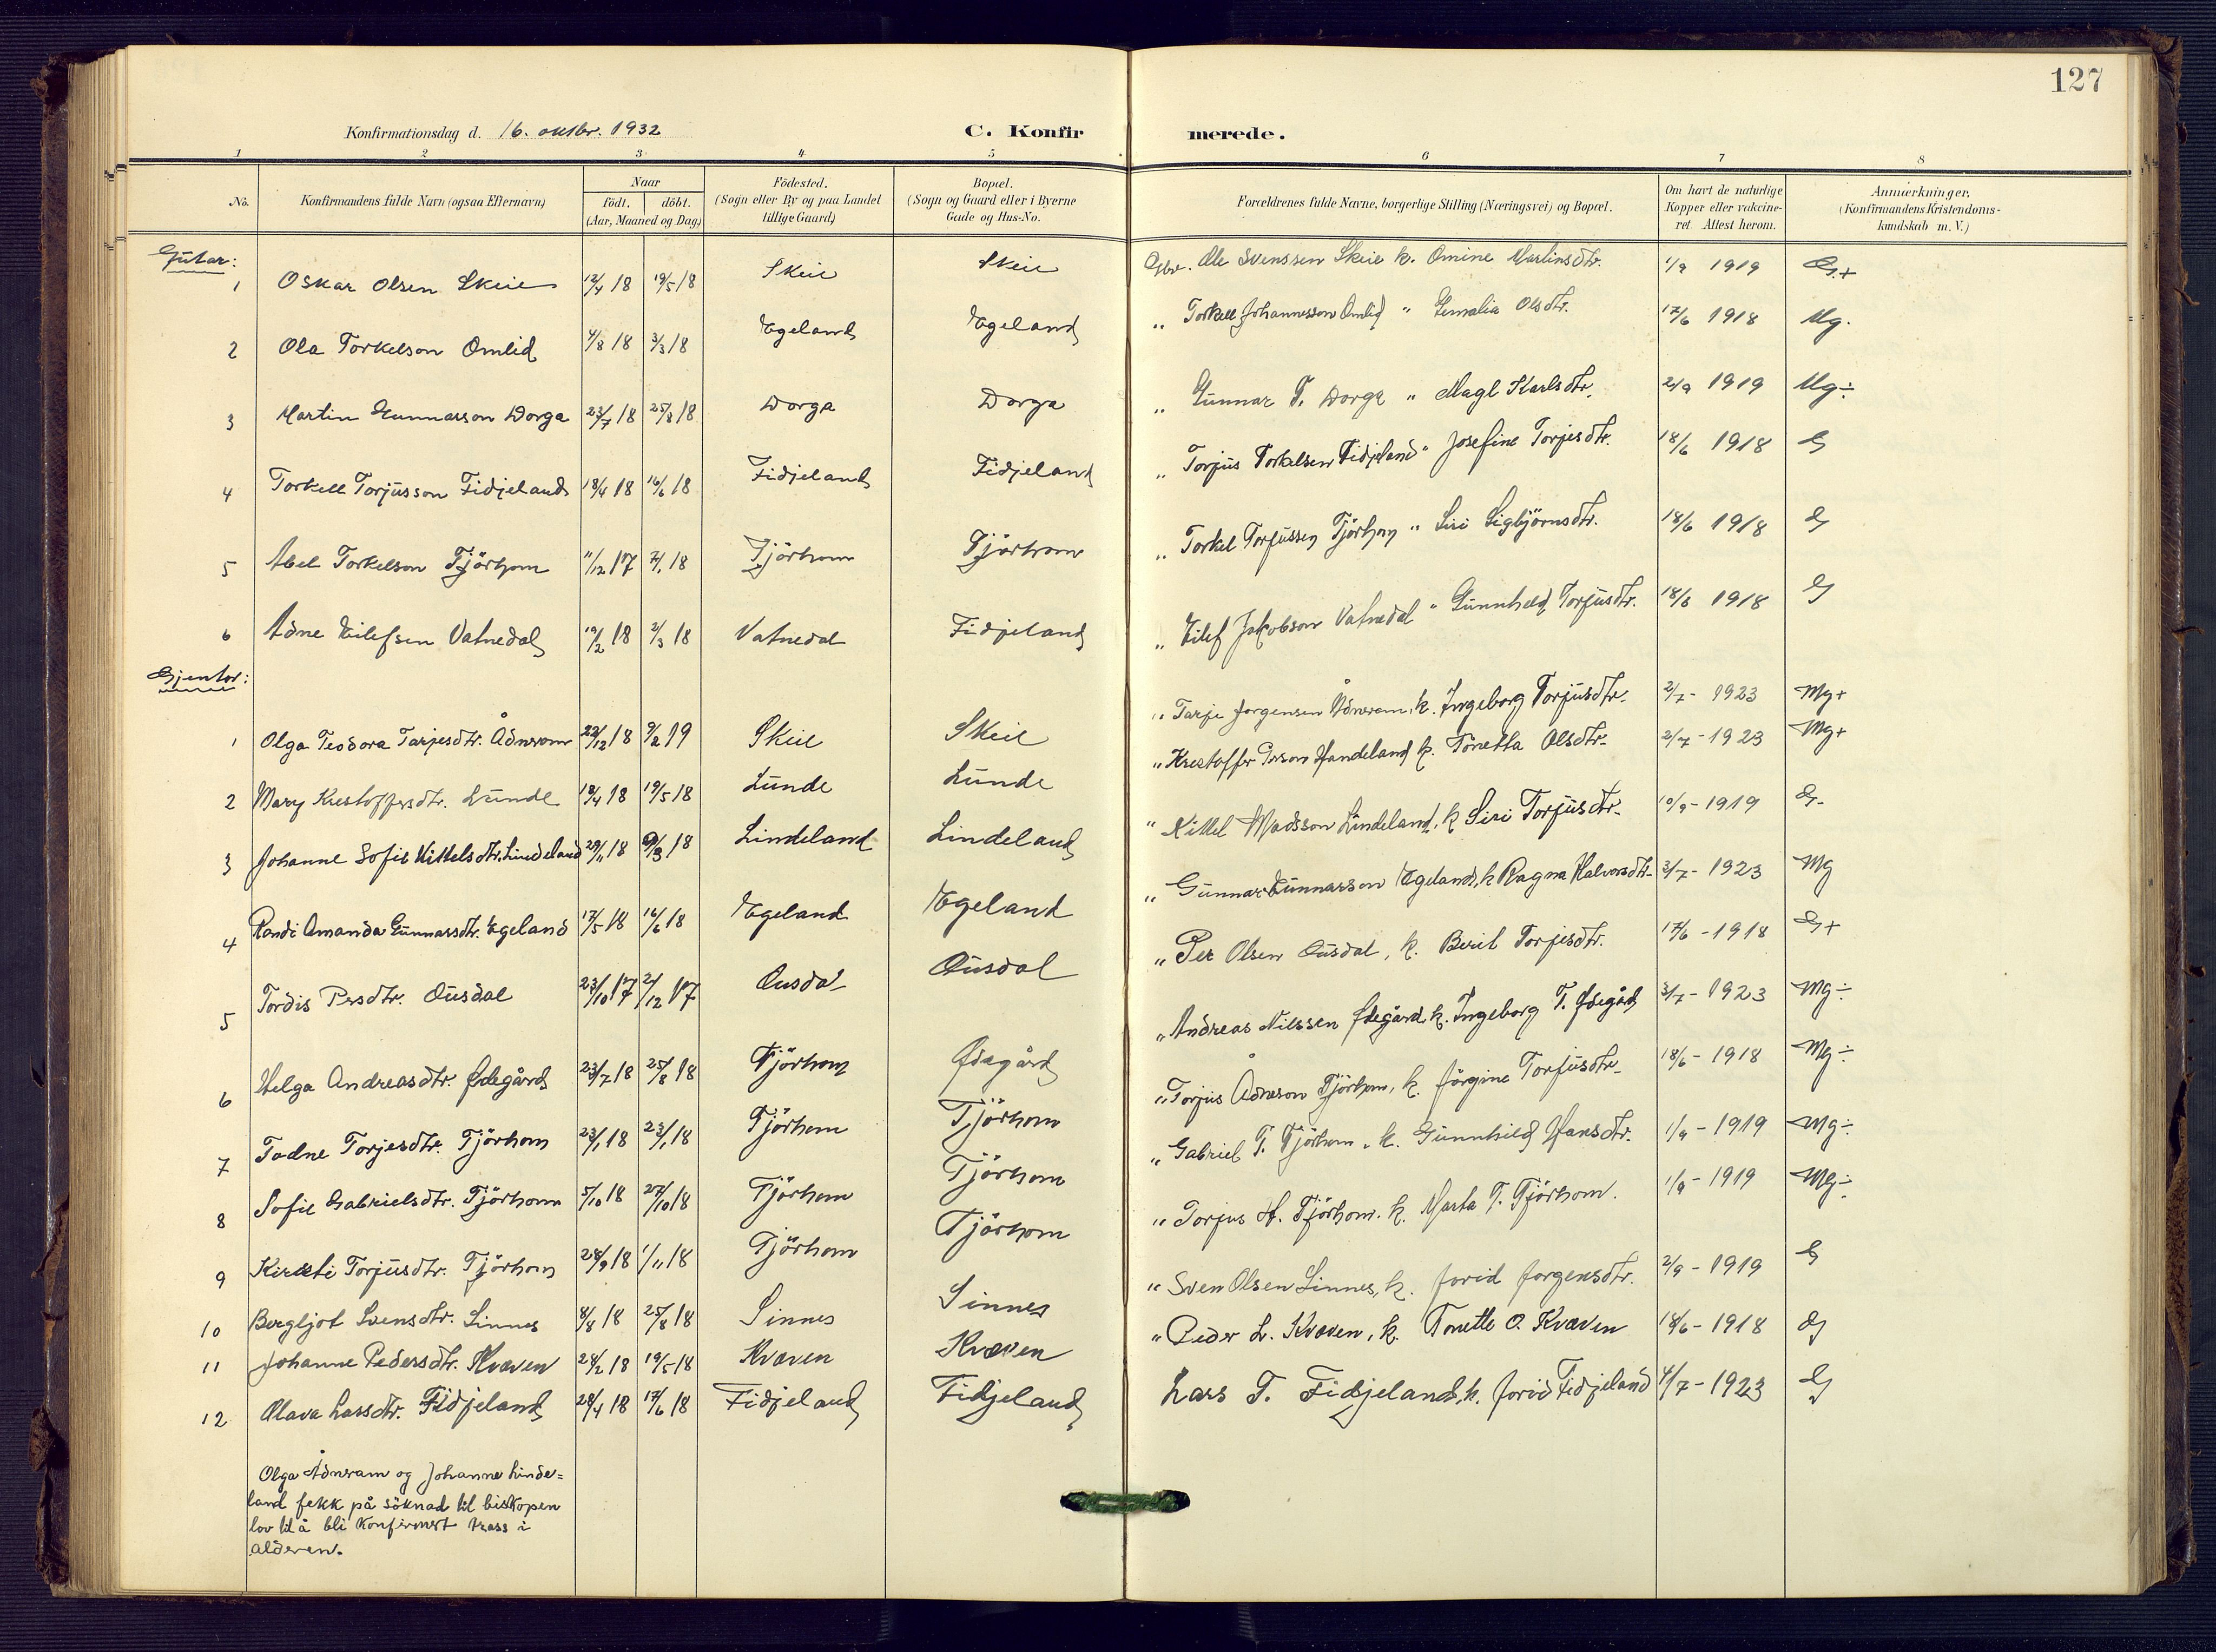 127
Konfirmationsdag d. 16. oktbr. 1932 C. Konfirmerede.
1 2 3 4 5 6 7 8
No. Konfirmandens fulde Navn (ogsaa Efternavn) Naar födt. döbt. (Aar, Maaned og Dag) Födested. (Sogn eller By og paa Landet tillige Gaard) Bopæl. (Sogn og Gaard eller i Byerne Gade og Hus-No. Forældrenes fulde Navne, borgerlige Stilling (Næringsvei) og Bopæl. Om havt de naturlige Kopper eller vakcineret. Attest herom. Anmærkninger, (Konfirmandens Kristendomskundskab m. V.)
Gutar:
1 Oskar Olsen Skeie 12/4 18 19/5 18 Skeie Skeie Gbr. Ole Svenssen Skeie k. Omine Martinsdtr. 1/9 1919 G.+
2 Ola Torkelson Omlid 4/2 18 3/3 18 Egeland Egeland " Torkell Johannesson Omlid " Olsdtr. 17/6 1918 Mg.
3 Martin Gunnarson Dorga 23/7 18 25/8 18 Dorga Dorga " Gunnar T. Dorga " Magl Karlsdtr. 2/9 1919 Mg÷
4 Torkell Torjusson Fidjeland 18/4 18 16/6 18 Fidjeland Fidjeland " Torjus Torkelsen Fidjeland " Josefine Torjesdtr. 18/6 1918 G
5 Abel Torkelson Tjörhom 11/12 17 2/1 18 Tjörhom Tjörhom " Torkel Torjussen Tjörhom " Siri Sigbjörnsdtr. 18/6 1918 G
6 Ådne Eilefsen Vatnedal 19/2 18 2/3 18 Vatnedal Fidjeland " Eilef Jakobson Vatnedal " Gunnheld Torjusdtr. 18/6 1918 G
Gjentor:
1 Olga Teodora Tarjesdtr. Ådneram 22/12 18 9/2 19 Skeie Skeie " Tarje Jorgensen Ådneram, k. Ingeborg Torjusdtr. 2/7 - 1923 Mg+
2 Mary Krestoffersdtr. Lunde 18/4 18 19/5 18 Lunde Lunde " Krestoffer Person Handeland k. Tonetta Olsdtr. 2/7 - 1923 Mg+
3 Johanne Sofie Kittelsdtr. Lindeland 29/11 18 18 Lindeland Lindeland " Kittel Madsson Lindeland, k Siri Torjusdtr. 10/9 - 1919 G-
4 Randi Amanda Gunnarsdtr. Egeland 17/5 18 16/6 18 Egeland Egeland " Gunnar Gunnarsson Egeland, k Ragna Halvorsdtr. 3/7 - 1923 Mg
5 Tordis Persdtr. Ousdal 23/10 17 2/12 17 Ousdal Ousdal " Per Olsen Ousdal, k. Berit Torjesdtr. 17/6 - 1918 G+
6 Helga Andreasdtr. Ødegård 23/7 18 25/8 18 Tjörhom Ødegård " Andreas Nilssen Ødegård k. Ingeborg T. Ødegård 3/7 - 1923 Mg÷
7 Todne Torjesdtr. Tjörhom 23/1 18 23/1 18 Tjörhom Tjörhom " Torjus Ådneson Tjörhom, k. Jörgine Torjusdtr. 18/6 - 1918 Mg÷
8 Sofie Gabrielsdtr. Tjörhom 5/10 18 27/10 18 Tjörhom Tjörhom " Gabriel T. Tjörhom, k. Gunnhild Hansdtr. 1/9 - 1919 Mg÷
9 Kirsti Torjusdtr. Tjörhom 28/9 18 1/11 18 Tjörhom Tjörhom " Torjus H. Tjörhom. k. Marta T. Tjörhom. 1/9 - 1919 Mg÷
10 Bergljot Svensdtr. Sinnes 8/8 18 25/8 18 Sinnes Sinnes " Sven Olsen Sinnes, k. Jorid Jorgensdtr. 2/9 - 1919 G
11 Johanne Pedersdtr. Kvæven 24/2 18 19/5 18 Kvæven Kvæven " Peder L. Kvæven, k. Tonette O. Kvæven 18/6 - 1918 G
12 Olava Larsdtr. Fidjeland 28/4 18 17/6 18 Fidjeland Fidjeland Lars T. Fidjeland, k. Jorid Fidjeland 4/7 - 1923 G
Olga Ådneram og Johanne Linde=
land fekk på söknad til biskopen
lov til å bli konfirmert trass i
alderen.